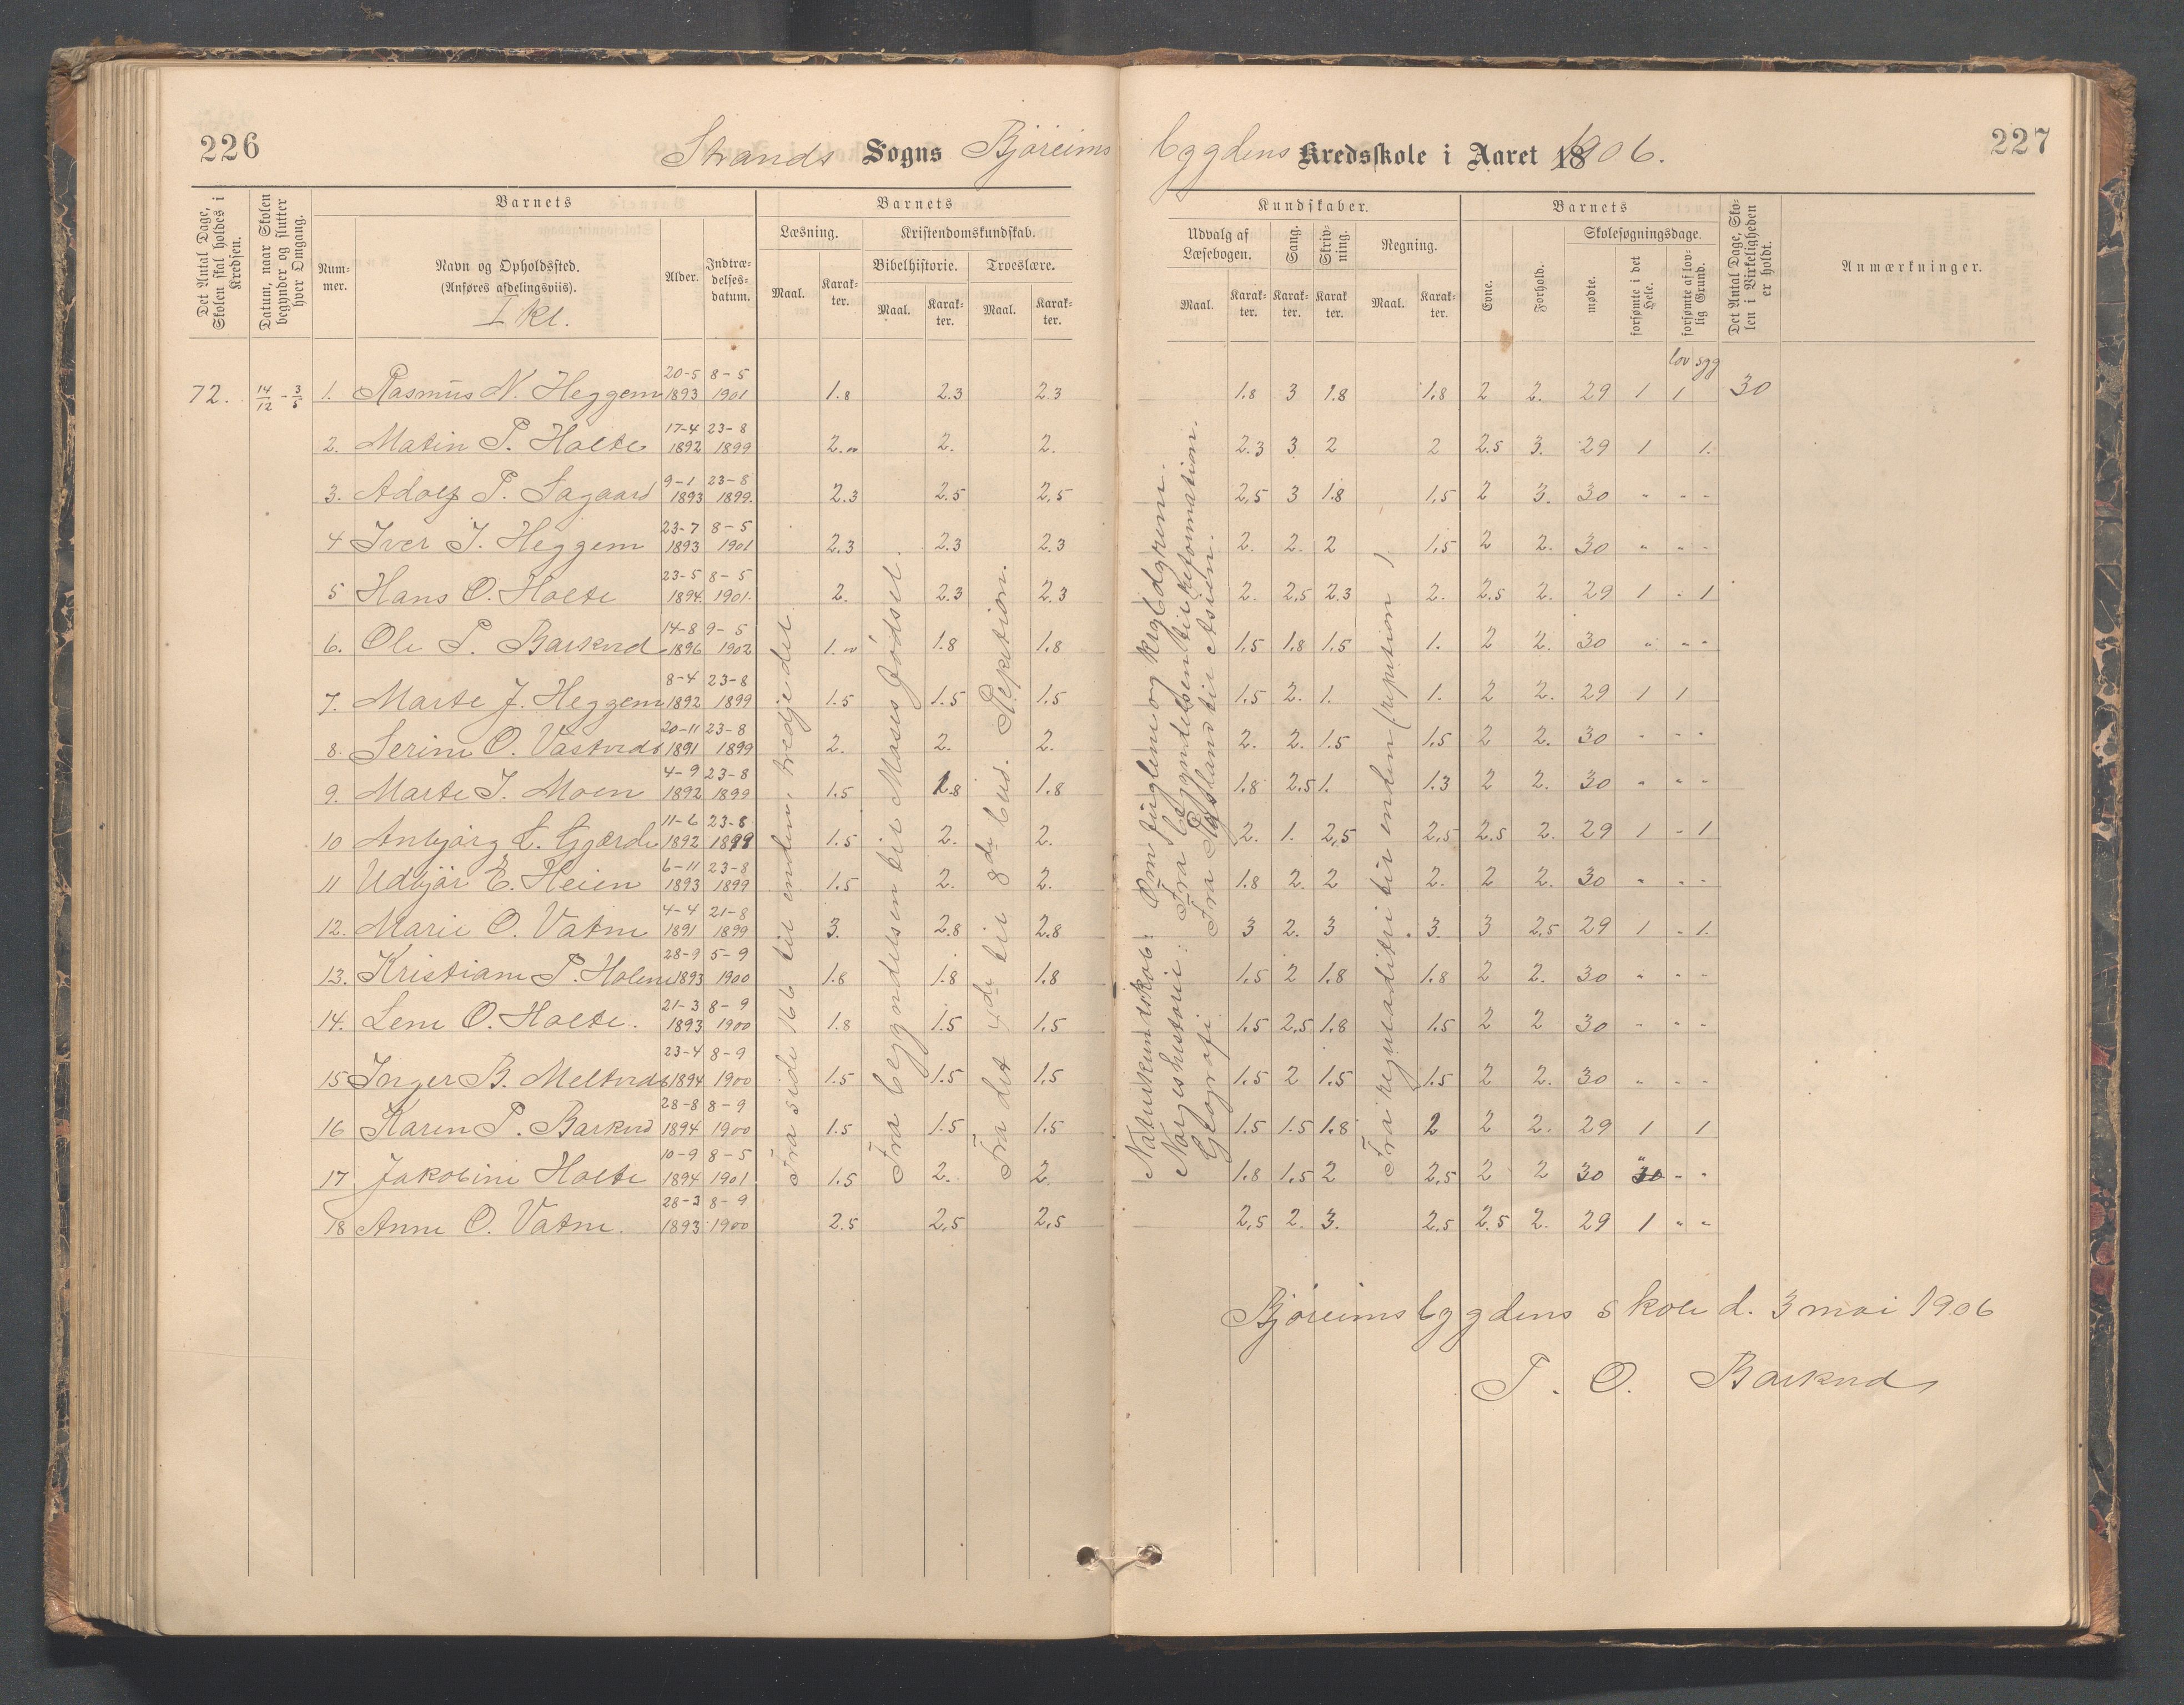 226
Strands Sogns Bjøreims
bygdens Kredsskole i Aaret 1906.
227
Det Antal Dage, Skolen skal holdes i Kredsen.
Datum, naar Skolen begynder og slutter hver Omgang.
Barnets
Num-
mer.
Navn og Opholdssted.
(Anføres afdelingsviis).
I kl.
Alder.
Indtræ-
delses-
datum.
Barnets
Læsning.
Maal.
Karak-
ter.
Kristendomskundskab.
Bibelhistorie.
Troeslære.
Maal.
Karak-
ter.
Maal.
Karak-
ter.
Kundskaber.
Udvalg af
Læsebogen.
Maal.
Karak-
ter.
Sang.
Karak-
ter.
Skriv-
ning.
Karak
ter.
Regning.
Maal.
Karak-
ter.
Barnets
Evne.
Forhold.
Skolesøgningsdage.
mødte.
forsømte i det Hele.
forsømte af lov-
lig Grund.
Det Antal Dage, Sko-
len i Virkeligheden
er holdt.
Anmærkninger.
lov syg
72. 14/12 - 3/5 1. Rasmus N. Heggem 20-5 1893 8-5 1901 1.8 2.3 2.3 1.8 3 1.8 1.8 2 2. 29 1 1 30
2. Matin P. Holte 17-4 1892 23-8 1899 2.00 2. 2. 2.3 3 2 2 2.5 3. 29 1 1.
3. Adolf P. Sagaard 9-1 1893 23-8 1899. 2.3 2.5 2.5 2.5 3 1.8 1.5 2 3. 30 " - -
4 Iver J. Heggem 23-7 1893 8-5 1901 2.3 2.3 2.3 2. 2. 2 1.5 2 2. 30 " - -
5 Hans O. Holte 23-5 1894. 8-5 1901. 2. 2.3 2.3 2. 2.5 2.3 2. 2.5 2. 29 1 - 1
6. Ole P. Barkved 14-8 1896 9-5 1902 1.00 1.8 1.8 1.5 1.8 1.5 1. 2 2. 30 " " "
7. Marte J. Heggem 8-4 1892 23-8 1899 1.5 1.5 1.5 1.5 2. 1. 1. 2 2. 29 1 1
8. Serine O. 20-11 1891 23-8 1899 2. 2. 2. 2. 2. 1.5 1.5 2 2. 30 - - -
9. Marte J. Moen 4-9 1892 23-8 1899 1.5 1.8 1.8 1.8 2.5 1. 1.3 2 2. 30 " " -
10 Anbjørg L. Gjærde 11-6 1892 23-8 1899 1.5 2. 2. 2. 1. 2.5 2.5 2.5 2. 29 1 - 1
11 Udbjør E. Heien 6-11 1893 23-8 1899 1.5 2. 2. 1.8 2. 2 2. 2 2. 30 " - -
12. Marie O. Vatne 4-4 1891 21-8 1899 3. 2.8 2.8 3 2. 3 3. 3 2.5 29 1 - 1.
13. Kristiane P. Holene 28-9 1893 5-9 1900 1.8 1.8 1.8 1.5 2 1.8 1.8 2 2. 30 " - -
14. Lene O. Holte. 21-3 1893 8-9 1900 1.8 1.5 1.5 1.5 2.5 1.8 1.5 2 2 30 - - -
15 Inger B. Meltveds 23-4 1894 8-9 1900 1.5 1.5 1.5 1.5 2 1.5 1.5 2 2. 30 " - -
16 Karen P. Barkved 28-8 1894 8-9 1900 1.5 1.5 1.5 1.5 1.5 1.8 2 2 2. 29 1 1
17 Jakobine Holte 10-9 1894 8-5 1901 1.5 2. 2. 1.8 1.5 2 2.5 2 2 30 30 " - -
18 Anne O. Vatne. 28-3 1893 8-9 1900 2.5 2.5 2.5 2.5 2. 3. 2.5 2.5 2. 29 1 " "
Fra side 166 til enden, tredje del
Fra begyndelsen til Moses fødsel.
Fra det 4de til 8de bud. Repetition.
Naturkundskab: Om fuglene og krybdyrene.
Norgeshistorie: Fra begyndelsen til reformation.
Geografi: Fra Rusland til Asien.
Fra reguladitri til enden (repetion)
Bjøreimsbygdens skole d. 3 mai 1906
P. O. Barkved